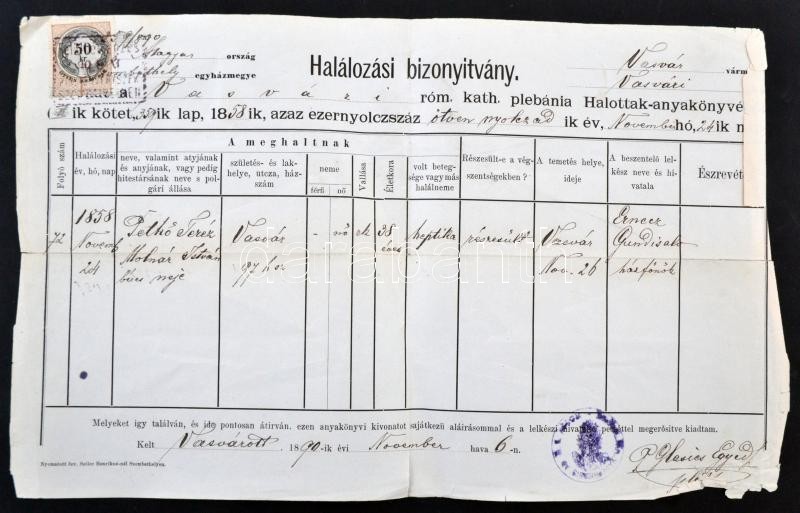 50
Magyar ország Vasvár várm
egyházmegye Halálozási bizonyitvány. Vasvári
Vasvári róm. kath. plebánia Halottak-anyakönyvé
ik kötet, ik lap, 1858 ik, azaz ezernyolczszáz ötven nyolczad ik év, November hó, 24 ik n
A meghaltnak
Folyó szám
Halálozási év, hó, nap
neve, valamint atyjának és anyjának, vagy pedig hitestársának neve s polgári állása
születés- és lakhelye, utcza, házszám
neme
férfi
nő
Vallása
Életkora
volt betegsége vagy más halálneme
Részesült-e a végszentségekben ?
A temetés helye, ideje
A beszentelő lelkész neve és hivatala
Észrevét
72
1858
Novemb
24
Pethő Teréz
Molnár István
neje
Vasvár
97 hsz
-
nő
k
38
éves
heptika
részesült
Vasvár
Nov. 26
Ernecz
Gundisalv
házfőnök
darabanth
Melyeket igy találván, és ide pontosan átirván, ezen anyakönyvi kivonatot sajátkezü aláirásommal és a lelkészi hivatalos pecséttel megerősitve kiadtam.
Kelt Vasvárott 1890-ik évi November hava 6-n.
P. Glesics Egyed
Nyomatott özv. Seiler Henrikné-nél Szombathelyen.